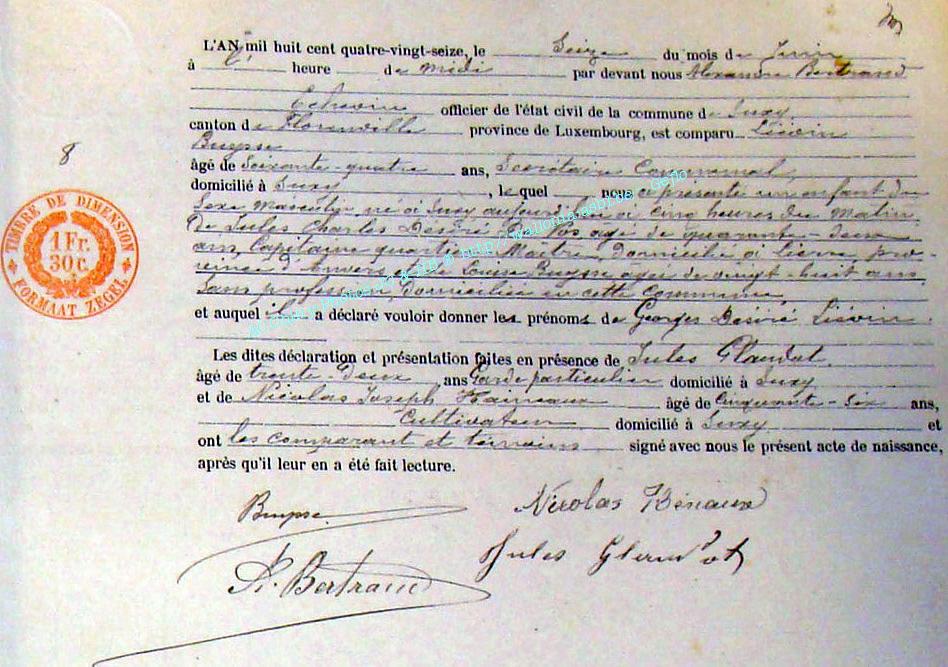 L'AN mil huit cent quatre-vingt-seize, le Seize du mois de Juin
à heure de midi par devant nous Alexandre Bertrand
Echevin officier de l'état civil de la commune de Suxy
canton de Florenville province de Luxembourg, est comparu Liévin
Buysse
âgé de Soixante-quatre ans, Secrétaire Communal
domicilié à Suxy, le quel nous a présenté un enfant du
Sexe Masculin né à Suxy aujourd'hui à cinq heures du matin
De Jules Charles Désiré agé de quarante-deux
ans, Capitaine quartier Maître, domicilié à Lierre, pro-
vince d'Anvers et de Louise Buysse agée de vingt-huit ans
Sans profession, Domiciliée en cette Commune
et auquel il a déclaré vouloir donner les prénoms de Georges Désiré Liévin.
Les dites déclaration et présentation faites en présence de Jules
âgé de trente-Deux ans Garde particulier domicilié à Suxy
et de Nicolas Joseph âgé de Cinquante-Six ans,
Cultivateur domicilié à Suxy et
ont les comparant et témoins signé avec nous le présent acte de naissance,
après qu'il leur en a été fait lecture.
Buysse
Nicolas
Jules
A. Bertrand
8
TIMBRE DE DIMENSION
1 Fr.
30 C.
FORMAAT ZEGEL